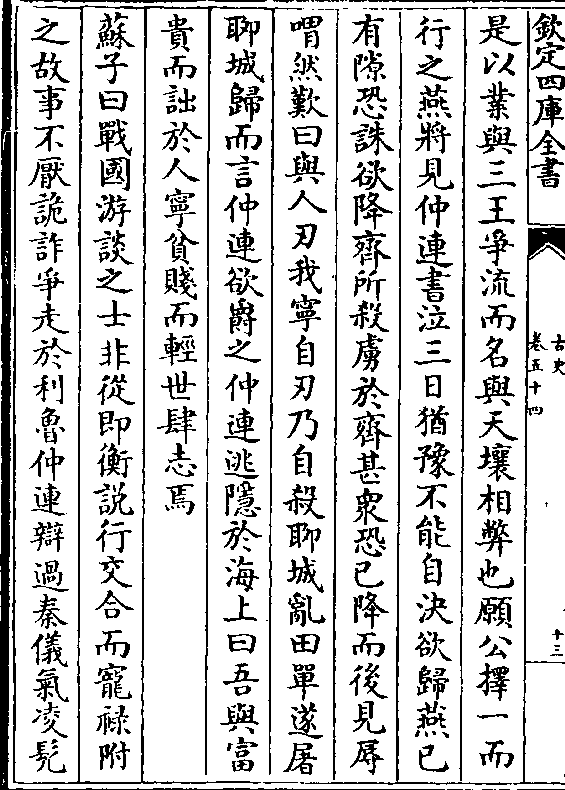 欽定四庫全書
古史
卷五十四
十三
是以業與三王爭流而名與天壤相弊也願公擇一而
行之燕將見仲連書泣三日猶豫不能自決欲歸燕已
有隙恐誅欲降齊所殺虜於齊甚衆恐已降而後見辱
喟然歎曰與人刃我寧自刃乃自殺聊城亂田單遂屠
聊城歸而言仲連欲爵之仲連逃隱於海上曰吾與富
貴而詘於人寧貧賤而輕世肆志焉
蘇子曰戰國游談之士非從即衡説行交合而寵祿附
之故事不厭詭詐爭走於利魯仲連辯過秦儀氣凌髠